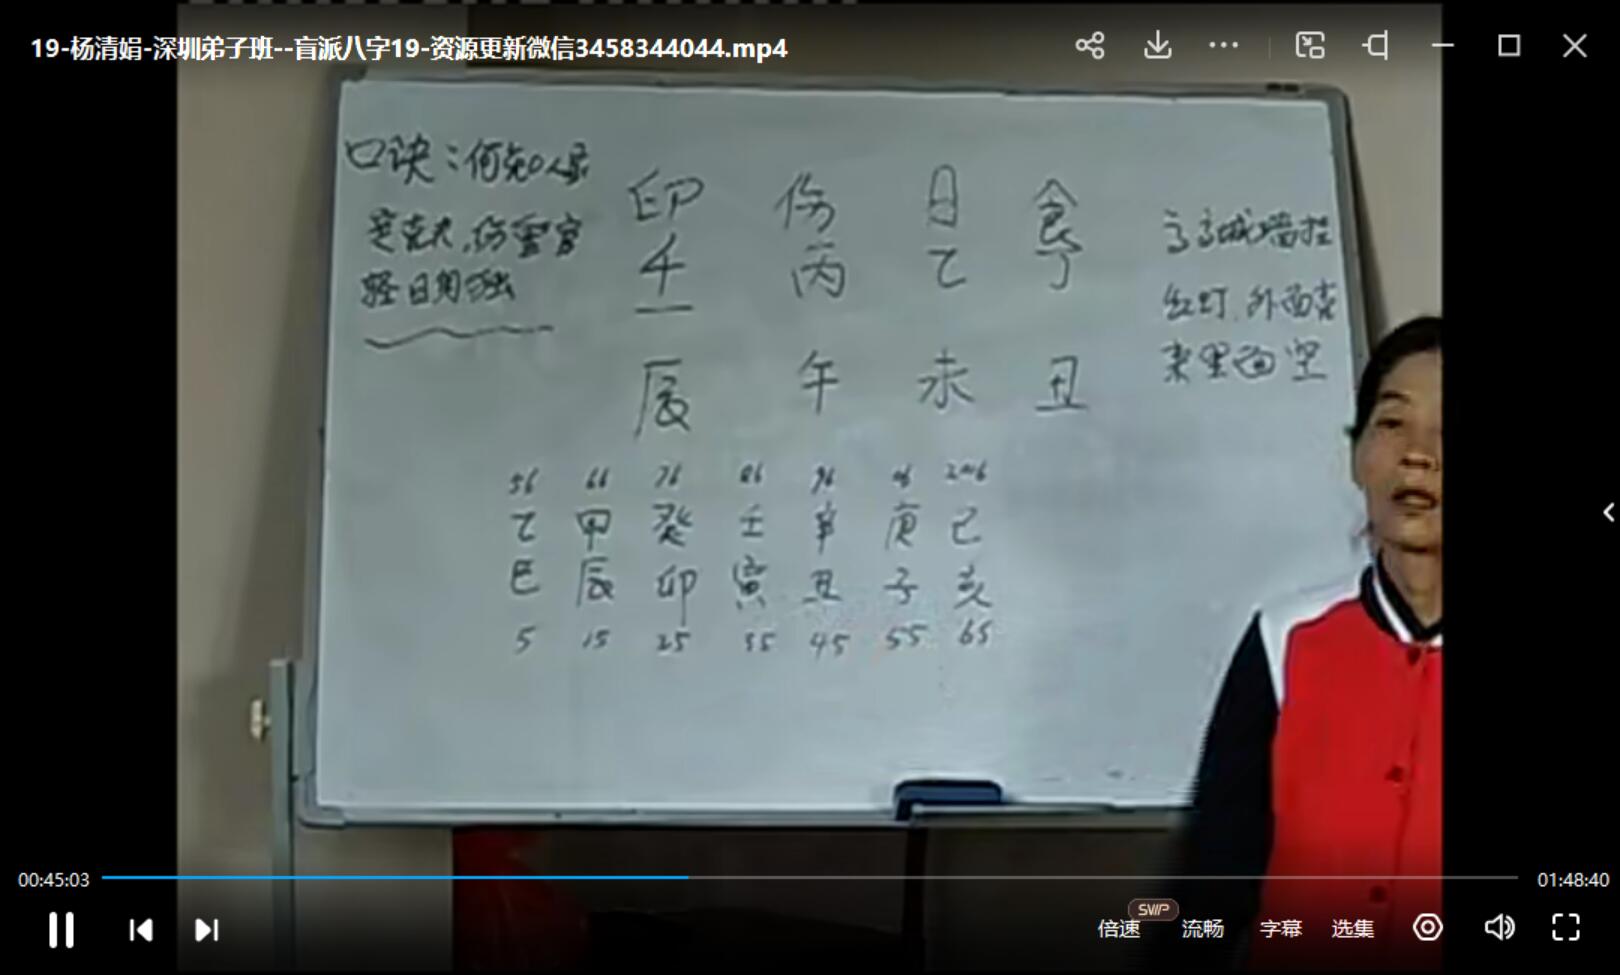 19-杨清娟-深圳弟子班--盲派八字19-资源更新微信3458344044.mp4
口诀:何知人家
定克夫,伤重官
轻日月独
印 伤 日 食
壬 丙 乙 丁
辰 午 未 丑
高高城墙挂
红灯,外面克
来里面空
56 66 76 86 96 06 2016
乙 甲 癸 壬 辛 庚 己
巳 辰 卯 寅 丑 子 亥
5 15 25 35 45 55 65
00:45:03
01:48:40
SVIP
倍速 流畅 字幕 选集